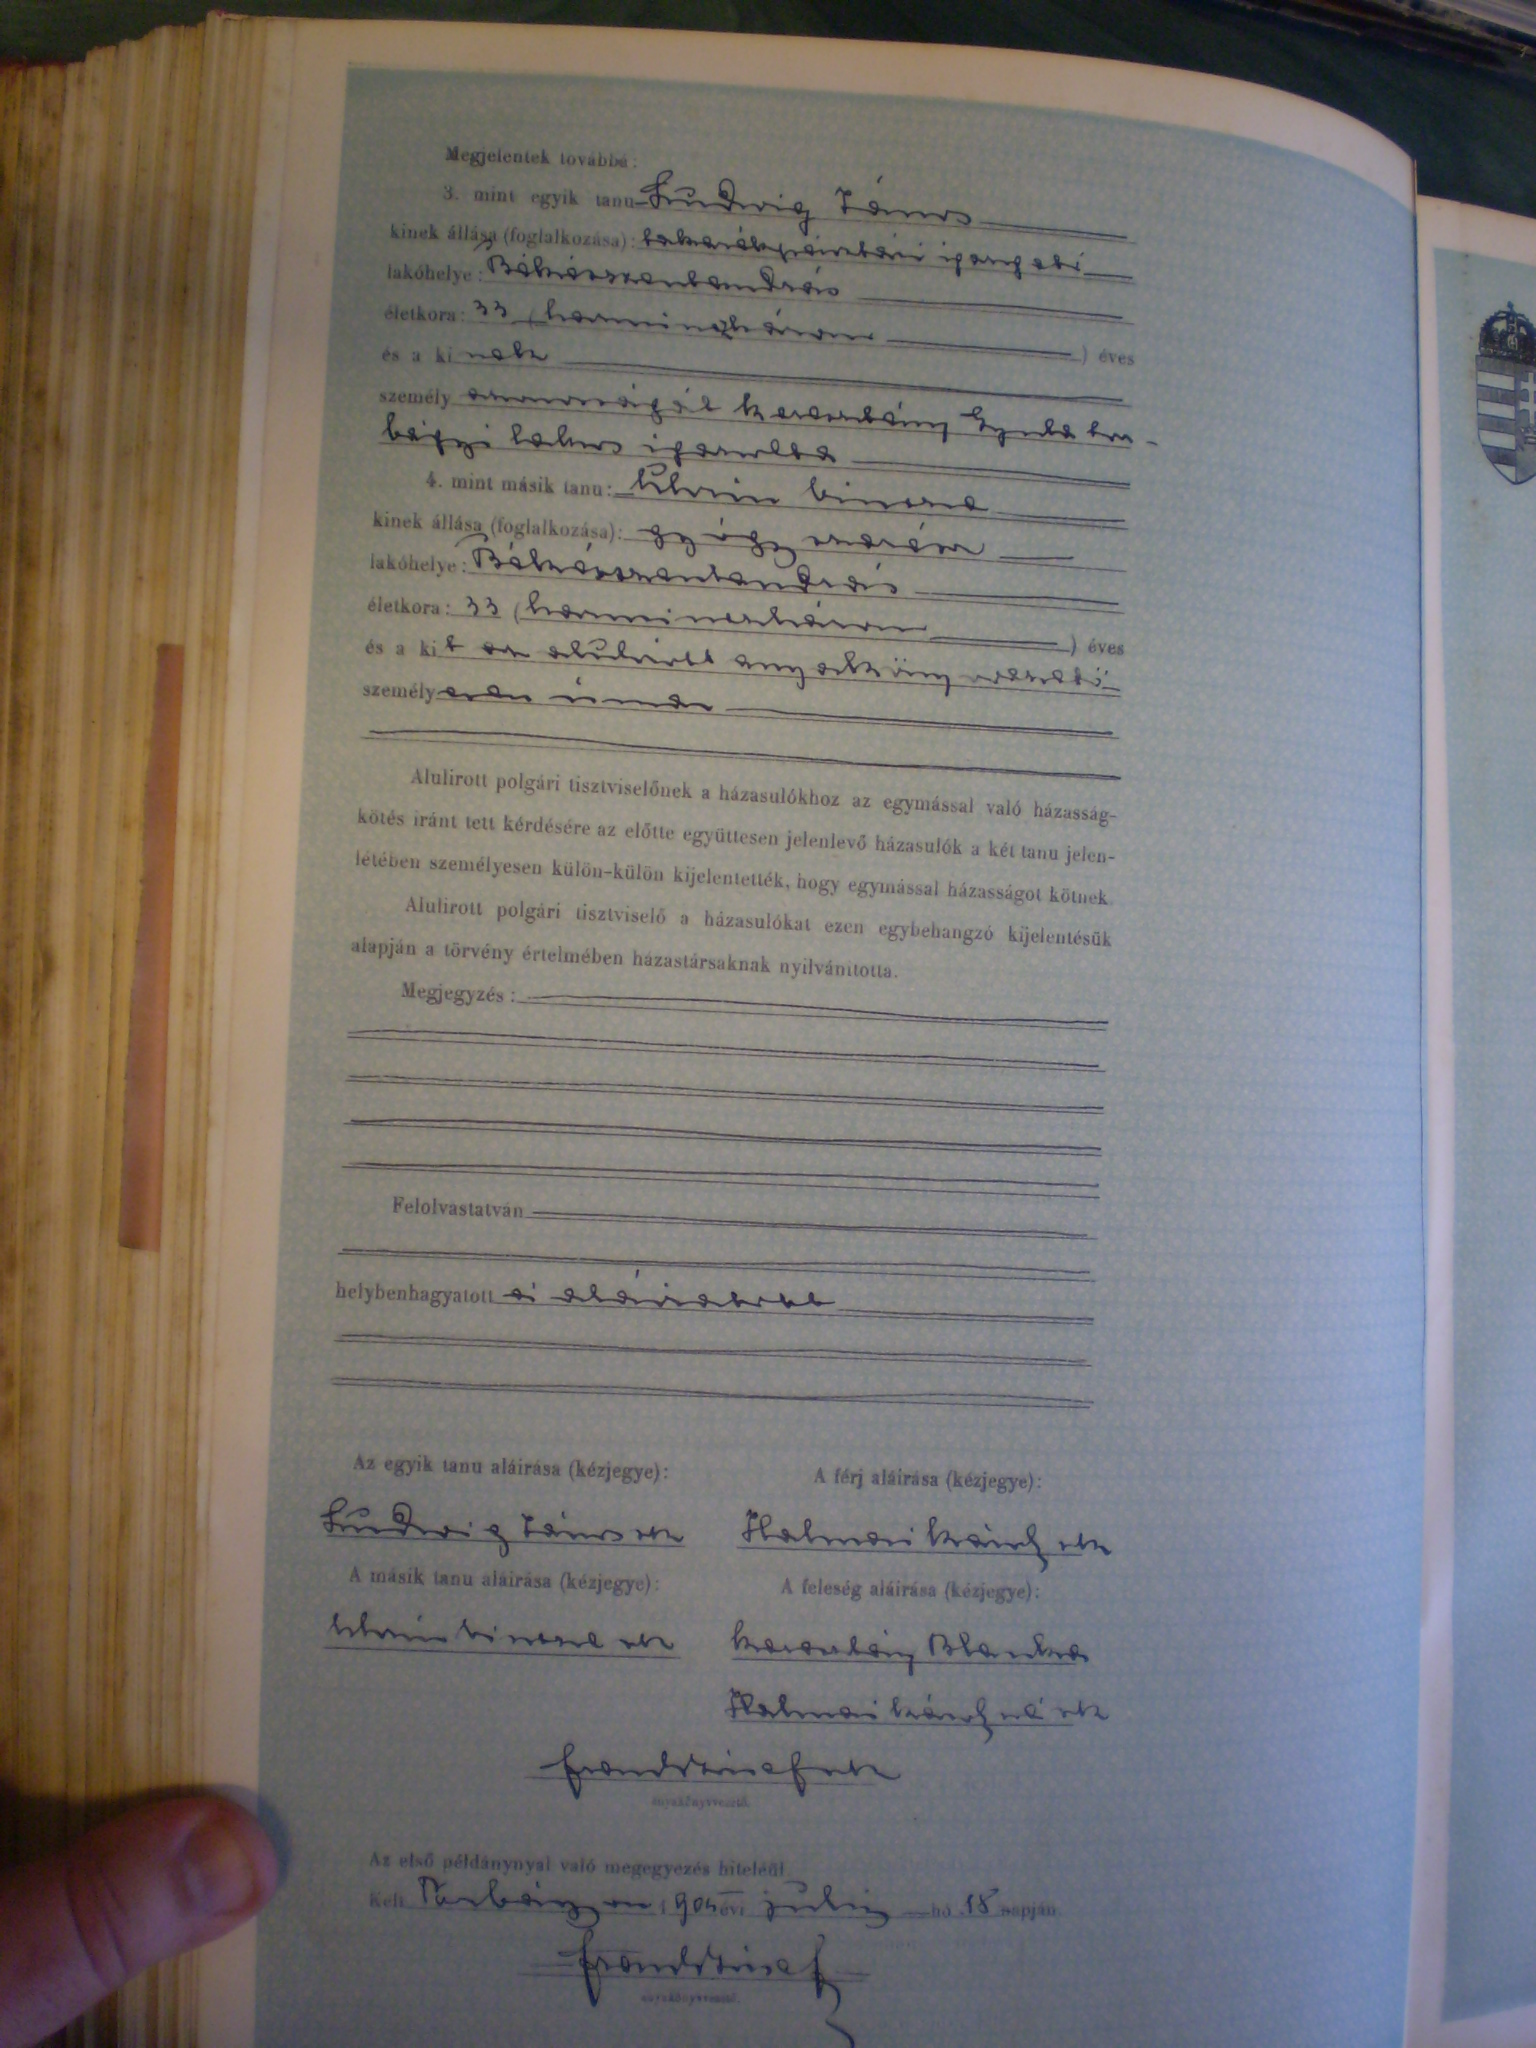 Megjelentek továbbá:
3. mint egyik tanu Ludwig János
kinek állása (foglalkozása): takarékpénztári igazgató
lakóhelye: Békésszentandrás
életkora: 33 (harminchárom) éves
és a ki nek
személy azonosságát Karasztány Gyula tor-
bágyi lakos igazolta
4. mint másik tanu:
kinek állása (foglalkozása): gyógyszerész
lakóhelye: Békésszentandrás
életkora: 33 (harminczhárom) éves
és a ki t az alulirott anyakönyvvezető
személyesen ismer
Alulirott polgári tisztviselőnek a házasulókhoz az egymással való házasság-
kötés iránt tett kérdésére az előtte együttesen jelenlevő házasulók a két tanu jelen-
létében személyesen külön-külön kijelentették, hogy egymással házasságot kötnek.
Alulirott polgári tisztviselő a házasulókat ezen egybehangzó kijelentésük
alapján a törvény értelmében házastársaknak nyilvánitotta.
Megjegyzés:
Felolvastatván
helybenhagyatott és aláiratott
Az egyik tanu aláirása (kézjegye):
A férj aláirása (kézjegye):
Ludwig János sk
Halmai Károly sk
A másik tanu aláirása (kézjegye):
A feleség aláirása (kézjegye):
sk
Blanka
Halmai Károlyné sk
sk
anyakönyvvezető.
Az első példánynyal való megegyezés hiteléül.
Kelt Torbágyon 1904 évi július hó 18 napján
anyakönyvvezető.